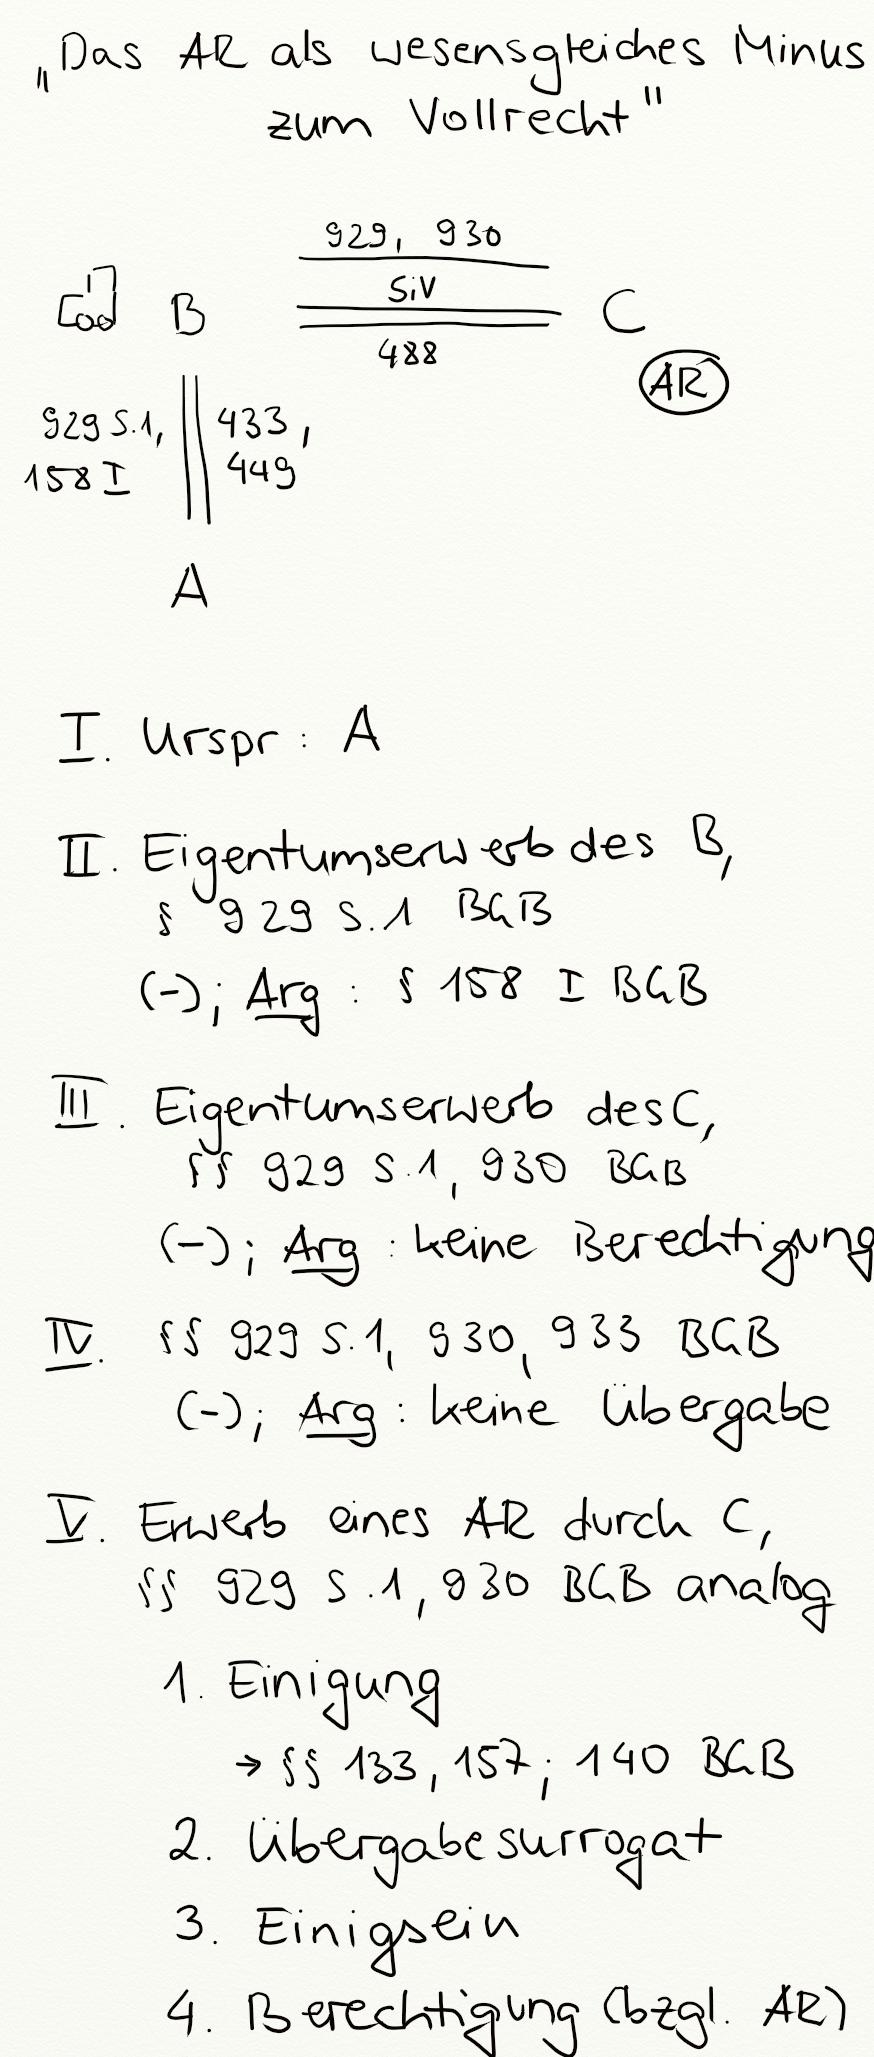 „Das AR als wesensgleiches Minus
zum Vollrecht"
929, 930
SiV
B
C
488
AR
929 S.1,
433,
158 I
449
A
I. Urspr: A
II. Eigentumserwerb des B,
§ 929 S.1 BGB
(-); Arg: § 158 I BGB
III. Eigentumserwerb des C,
§§ 929 S.1, 930 BGB
(-); Arg: keine Berechtigung
IV. §§ 929 S.1, 930, 933 BGB
(-); Arg: keine Übergabe
V. Erwerb eines AR durch C,
§§ 929 S.1, 930 BGB analog
1. Einigung
→ §§ 133, 157; 140 BGB
2. Übergabesurrogat
3. Einigsein
4. Berechtigung (bzgl. AR)